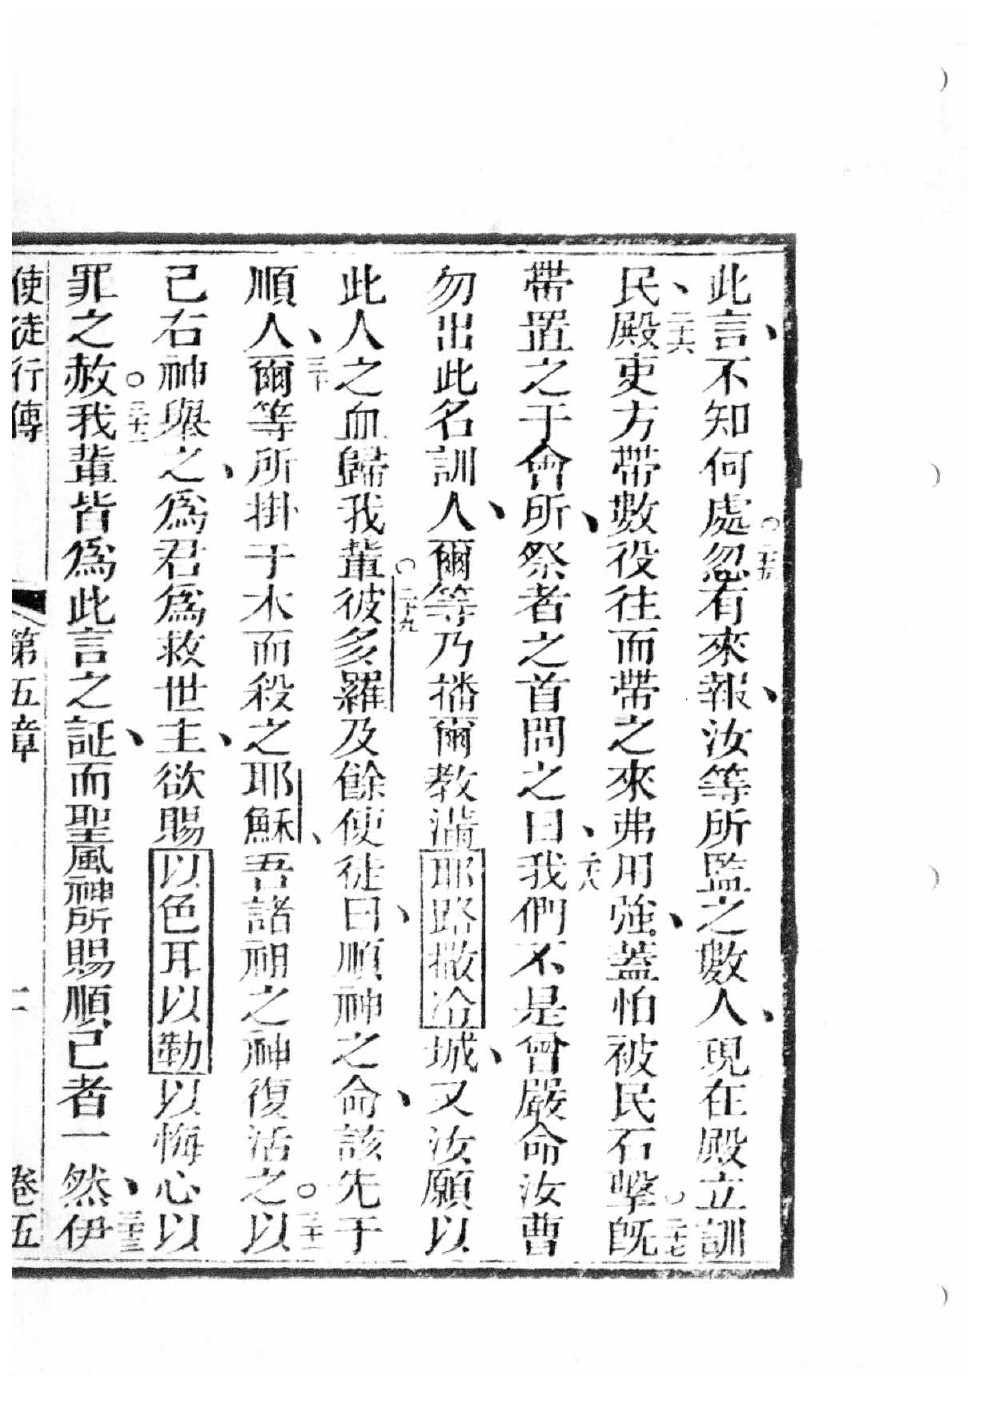 此言、不知何處。二十五忽有來報、汝等所監之數人、現在殿立訓
民、二十六殿吏方帶數役往而帶之來弗用強、蓋怕被民石擊。二十七既
帶置之于會所、祭者之首問之曰、二十八我們不是曾嚴命汝曹
勿出此名訓人、爾等乃播爾教滿耶路撒冷城、又汝願以
此人之血歸我輩。二十九彼多羅及餘使徒曰、順神之命、該先于
順人、三十爾等所掛于木而殺之耶穌、吾諸祖之神復活之。三十一以
己右神舉之、為君為救世主、欲賜以色耳以勒以悔心以
罪之赦。三十二我輩皆為此言之証、而聖風神所賜順己者一然、三十三伊
使徒行傳 第五章 二 卷五